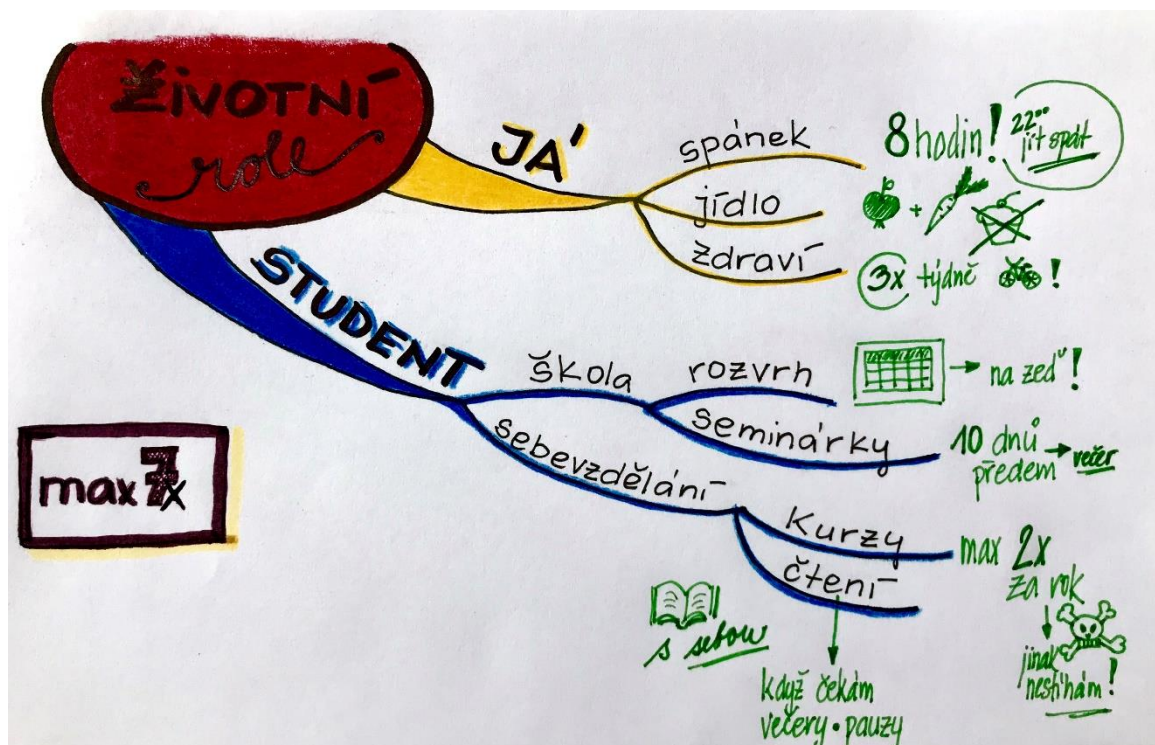 ŽIVOTNÍ
role
JÁ
spánek
8 hodin!
22⁰⁰
jít spát
jídlo
+
zdraví
3x týdně !
STUDENT
škola
rozvrh
→ na zeď!
seminárky
10 dnů
předem → večer
sebevzdělání
kurzy
max 2x
za rok
jinak
nestíhám!
čtení
s sebou
když čekám
večery • pauzy
max 7x